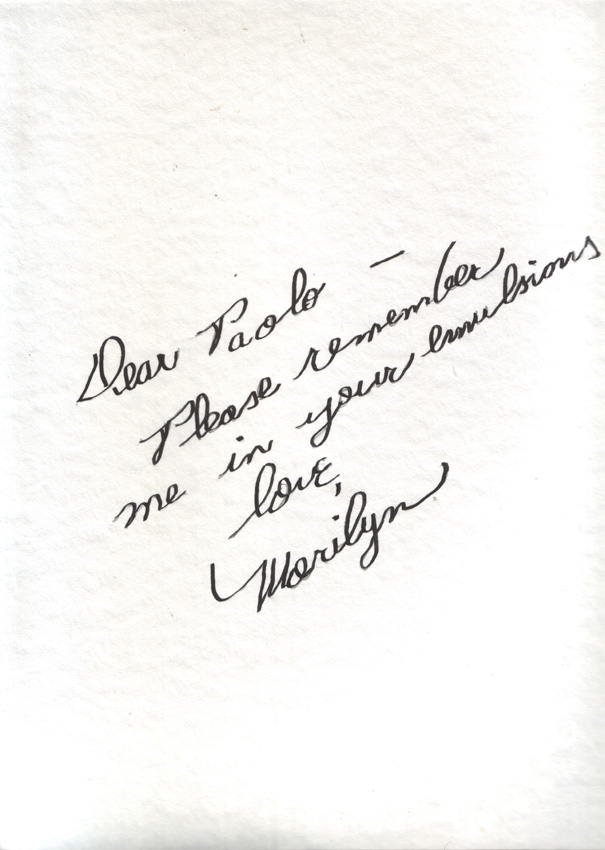 Dear Paolo —
Please remember
me in your emulsions
love,
Marilyn